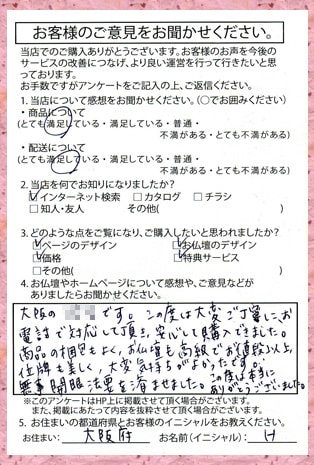 お客様のご意見をお聞かせください。
当店でのご購入ありがとうございます。お客様のお声を今後の
サービスの改善につなげ、より良い運営を行って行きたいと思
っております。
お手数ですがアンケートをご記入の上、ご返信ください。
1. 当店について感想をお聞かせください。(○でお囲みください)
・商品について
(とても満足している・満足している・普通・
不満がある・とても不満がある)
・配送について
(とても満足している・満足している・普通・
不満がある・とても不満がある)
2. 当店を何でお知りになりましたか?
☑インターネット検索 □カタログ □チラシ
□知人・友人 その他( )
3. どのような点をご覧になり、ご購入したいと思われましたか?
☑ページのデザイン ☑お仏壇のデザイン
☑価格 ☑特典サービス
□その他( )
4. お仏壇やホームページについて感想や、ご意見などが
ありましたらお聞かせください。
大阪の です。この度は大変ご丁寧にお
電話で対応して頂き、安心して購入できました。
商品の梱包もよく、お仏壇も高級でお値段以上、
位牌も美しく、大変気持ちがよかったです。
無事開眼法要を済ませました。この度は本当に
ありがとうございました。
※このアンケートはHP上に掲載させて頂く場合がございます。
また、掲載にあたって内容を抜粋させて頂く場合がございます。
5. お住まいの都道府県とお客様のイニシャルをお教えください。
お住まい: 大阪府 お名前(イニシャル): H